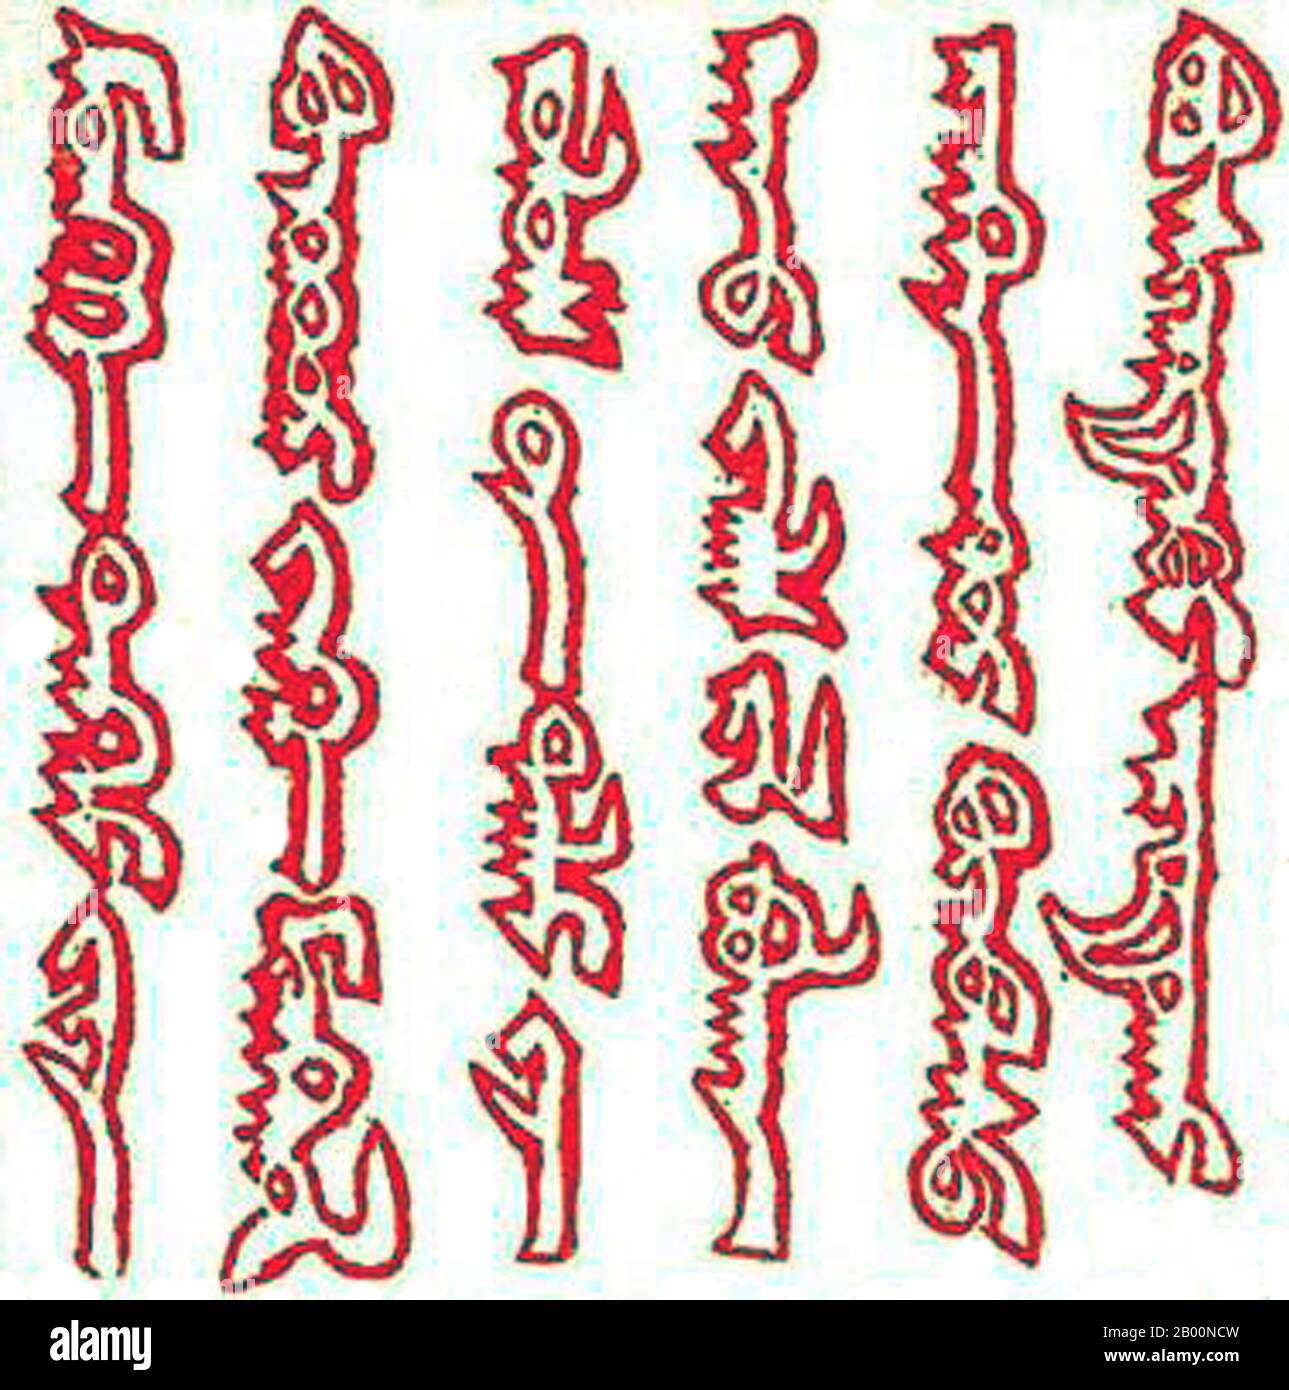 ᠮᠥᠩᠬᠡ ᠲᠩᠷᠢ ᠶᠢᠨ
ᠬᠦᠴᠦᠨ ᠳᠦᠷ ᠶᠡᠬᠡ ᠮᠣᠩᠭᠣᠯ
ᠤᠯᠤᠰ ᠤᠨ ᠳᠠᠯᠠᠢ ᠢᠨ
ᠬᠠᠨ ᠤ ᠵᠷᠯᠭ ᠢᠯ ᠪᠤᠯᠭᠠ
ᠢᠷᠭᠡᠨ ᠳᠦᠷ ᠬᠦᠷᠪᠡᠰᠦ
ᠪᠦᠰᠢᠷᠡᠲᠦᠭᠡᠢ ᠠᠶᠤᠲᠤᠭᠠᠢ
alamy
Image ID: 2B00NCW
www.alamy.com